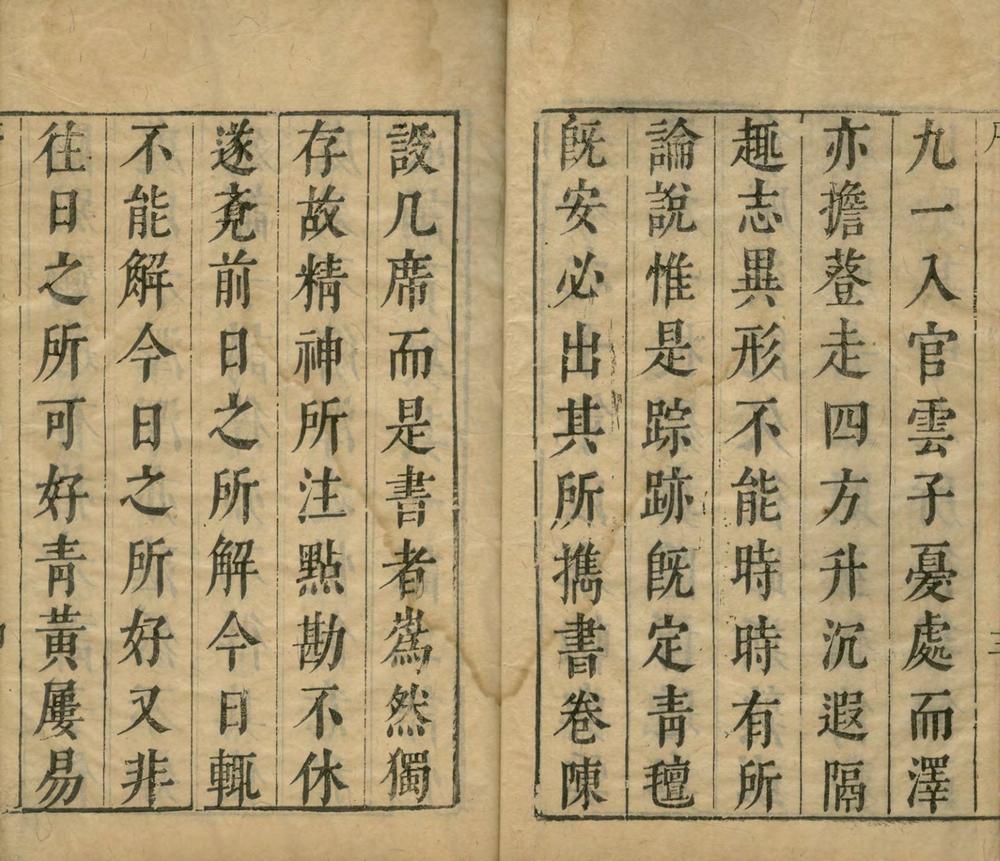 九一入官雲子憂處而澤
亦擔簦走四方升沉遐隔
趣志異形不能時時有所
論說惟是踪跡旣定青氊
旣安必出其所攜書卷陳
設几席而是書者嶲然獨
存故精神所注點勘不休
遂竟前日之所解今日輒
不能解今日之所好又非
往日之所可好青黃屢易